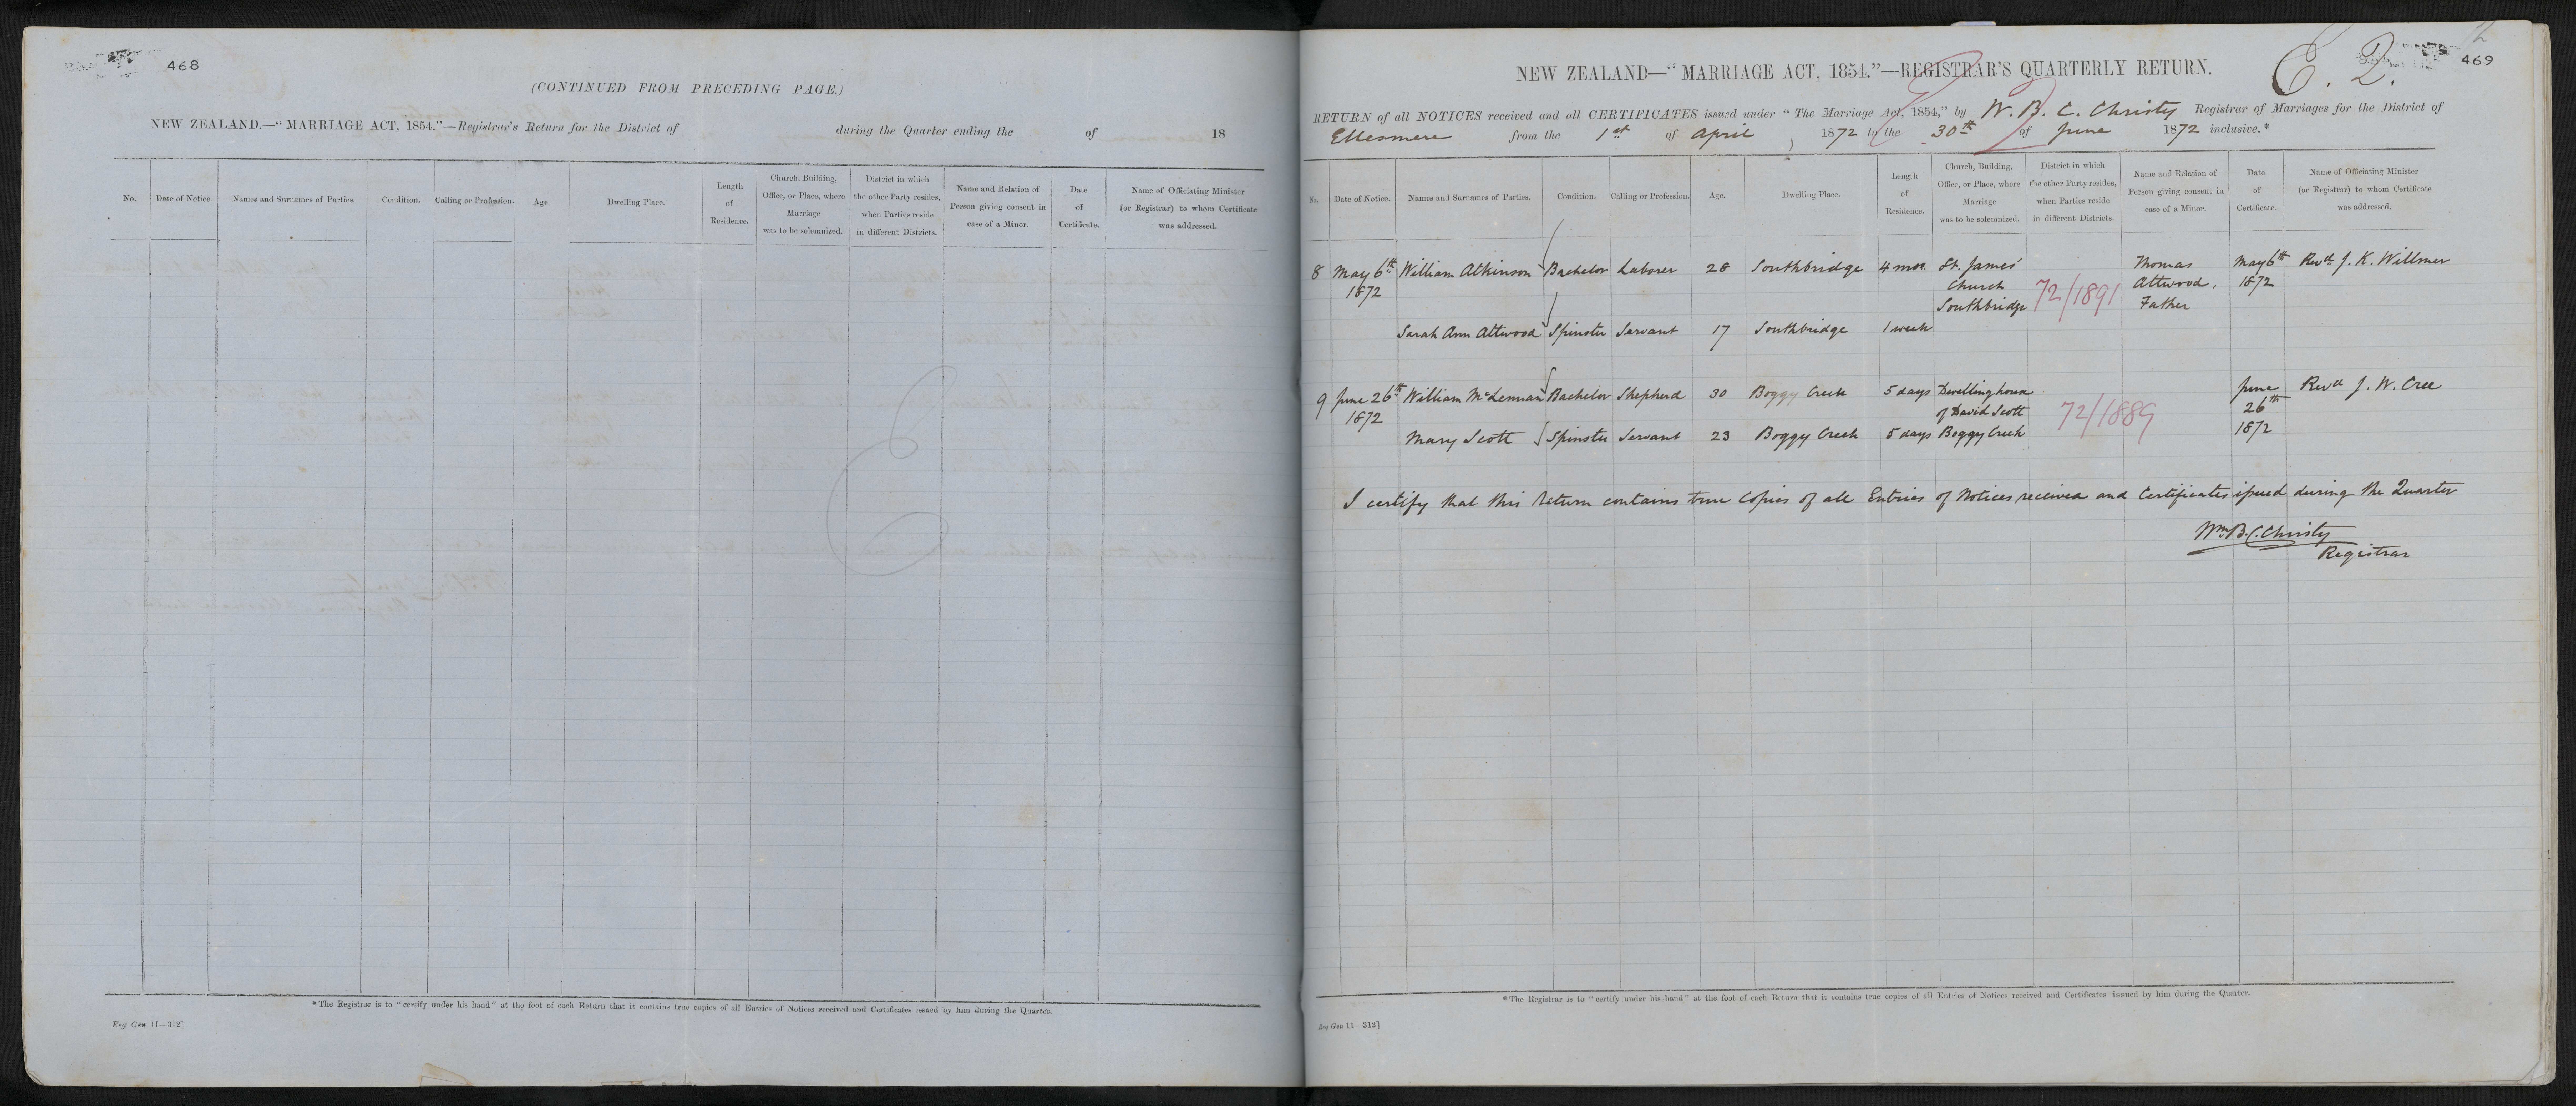 468
(CONTINUED FROM PRECEDING PAGE.)
NEW ZEALAND.—"MARRIAGE ACT, 1854."—Registrar's Return for the District of during the Quarter ending the of 18
No. Date of Notice. Names and Surnames of Parties. Condition. Calling or Profession. Age. Dwelling Place. Length of Residence. Church, Building, Office, or Place, where Marriage was to be solemnized. District in which the other Party resides, when Parties reside in different Districts. Name and Relation of Person giving consent in case of a Minor. Date of Certificate. Name of Officiating Minister (or Registrar) to whom Certificate was addressed.
*The Registrar is to "certify under his hand" at the foot of each Return that it contains true copies of all Entries of Notices received and Certificates issued by him during the Quarter.
Reg Gen 11—312]
469
NEW ZEALAND—"MARRIAGE ACT, 1854."—REGISTRAR'S QUARTERLY RETURN.
RETURN of all NOTICES received and all CERTIFICATES issued under "The Marriage Act, 1854," by W. B. C. Christy Registrar of Marriages for the District of
Ellesmere from the 1st of April 1872 to the 30th of June 1872 inclusive.*
No. Date of Notice. Names and Surnames of Parties. Condition. Calling or Profession. Age. Dwelling Place. Length of Residence. Church, Building, Office, or Place, where Marriage was to be solemnized. District in which the other Party resides, when Parties reside in different Districts. Name and Relation of Person giving consent in case of a Minor. Date of Certificate. Name of Officiating Minister (or Registrar) to whom Certificate was addressed.
8 May 6th William Atkinson Bachelor Laborer 28 Southbridge 4 mos. St. James' Thomas May 6th Revd. J. K. Willmer
1872 Church 72/1891 Attwood, 1872
Southbridge Father
Sarah Ann Attwood Spinster Servant 17 Southbridge 1 week
9 June 26th William McLennan Bachelor Shepherd 30 Boggy Creek 5 days Dwelling house June Revd J. W. Cree
1872 of David Scott 72/1889 26th
Mary Scott Spinster Servant 23 Boggy Creek 5 days Boggy Creek 1872
I certify that this return contains true Copies of all Entries of Notices received and Certificates issued during the Quarter
Wm. B. C. Christy
Registrar
*The Registrar is to "certify under his hand" at the foot of each Return that it contains true copies of all Entries of Notices received and Certificates issued by him during the Quarter.
Reg Gen 11—312]